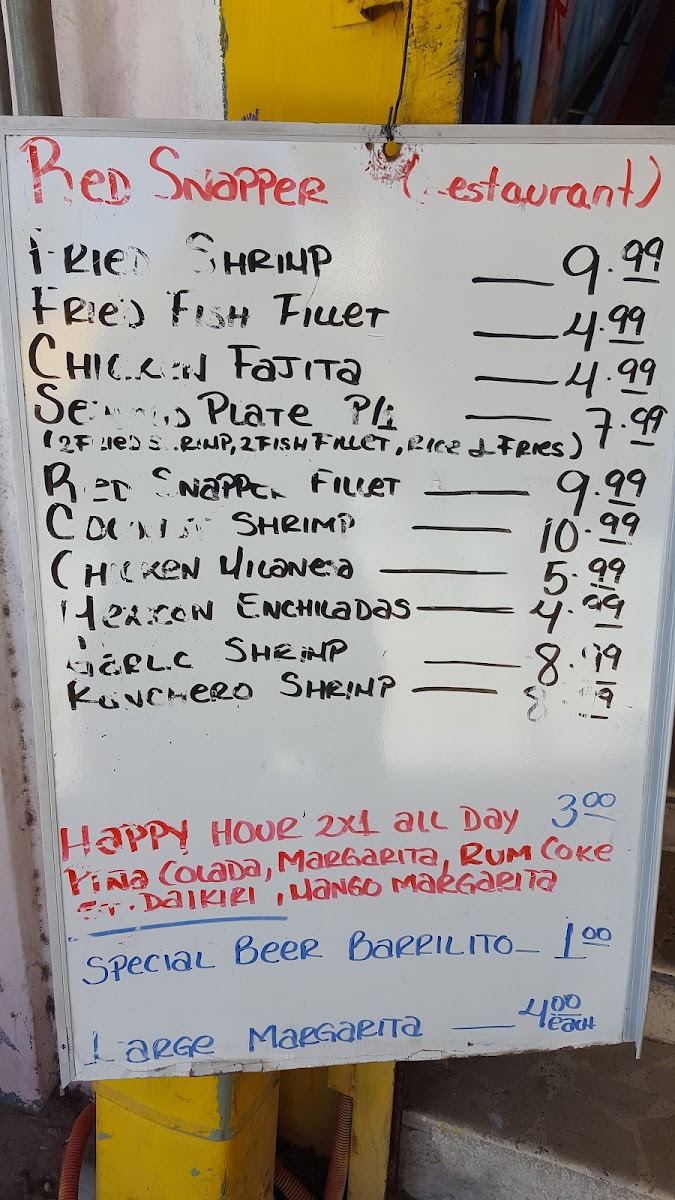 RED SNAPPER (Restaurant)
FRIED SHRIMP — 9.99
FRIED FISH FILLET — 4.99
CHICKEN FAJITA — 4.99
PLATE P/1 — 7.99
(2 FRIED SHRIMP, 2 FISH FILLET, RICE & FRIES)
RED SNAPPER FILLET — 9.99
COCONUT SHRIMP — 10.99
CHICKEN MILANESA — 5.99
MEXICAN ENCHILADAS — 4.99
GARLIC SHRIMP — 8.99
RANCHERO SHRIMP — 8.99
HAPPY HOUR 2X1 ALL DAY 3.00
PIÑA COLADA, MARGARITA, RUM COKE
ST. DAIKIRI, MANGO MARGARITA
SPECIAL BEER BARRILITO — 1.00
LARGE MARGARITA — 4.00 EACH